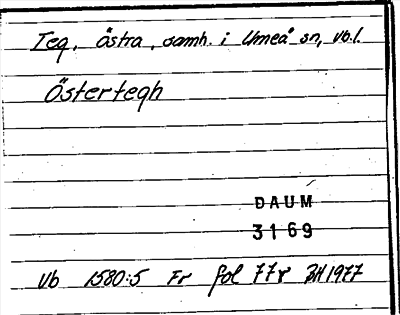 Teg, Östra, samh. i Umeå sn, Vb.l.
Östertegh
DAUM
3169
Vb 1580:5 Fr fol 77r BH 1977